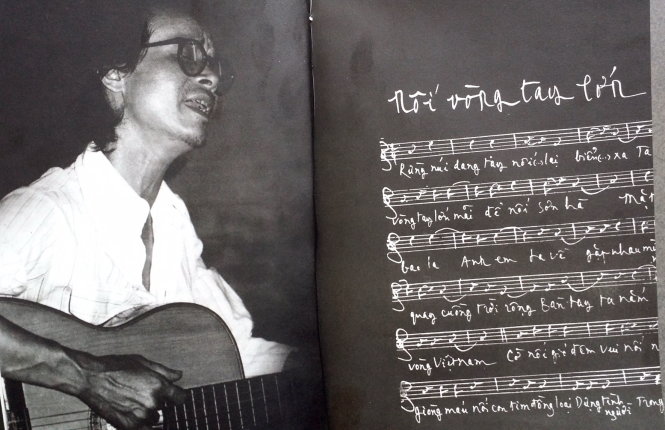 nối vòng tay lớn
Rừng núi dang tay nối(..)lại biển(..) xa Ta
vòng tay lớn mãi để nối sơn hà Mặt
bao la Anh em ta về gặp nhau
quay cuồng trời rộng Bàn tay ta nắm
vòng Việt Nam Cờ nối gió đêm vui nối
giòng máu nối con tim đồng loại Dựng tình
người Trong